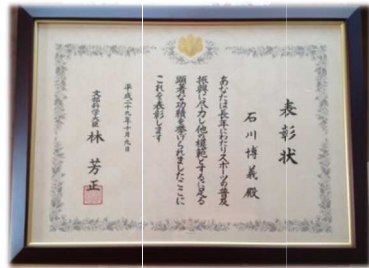 表彰状
石川博義殿
あなたは長年にわたりスポーツの普及
振興に尽力し他の模範とするに足る
顕著な功績を挙げられましたここに
これを表彰します
平成二十九年十月九日
文部科学大臣 林芳正